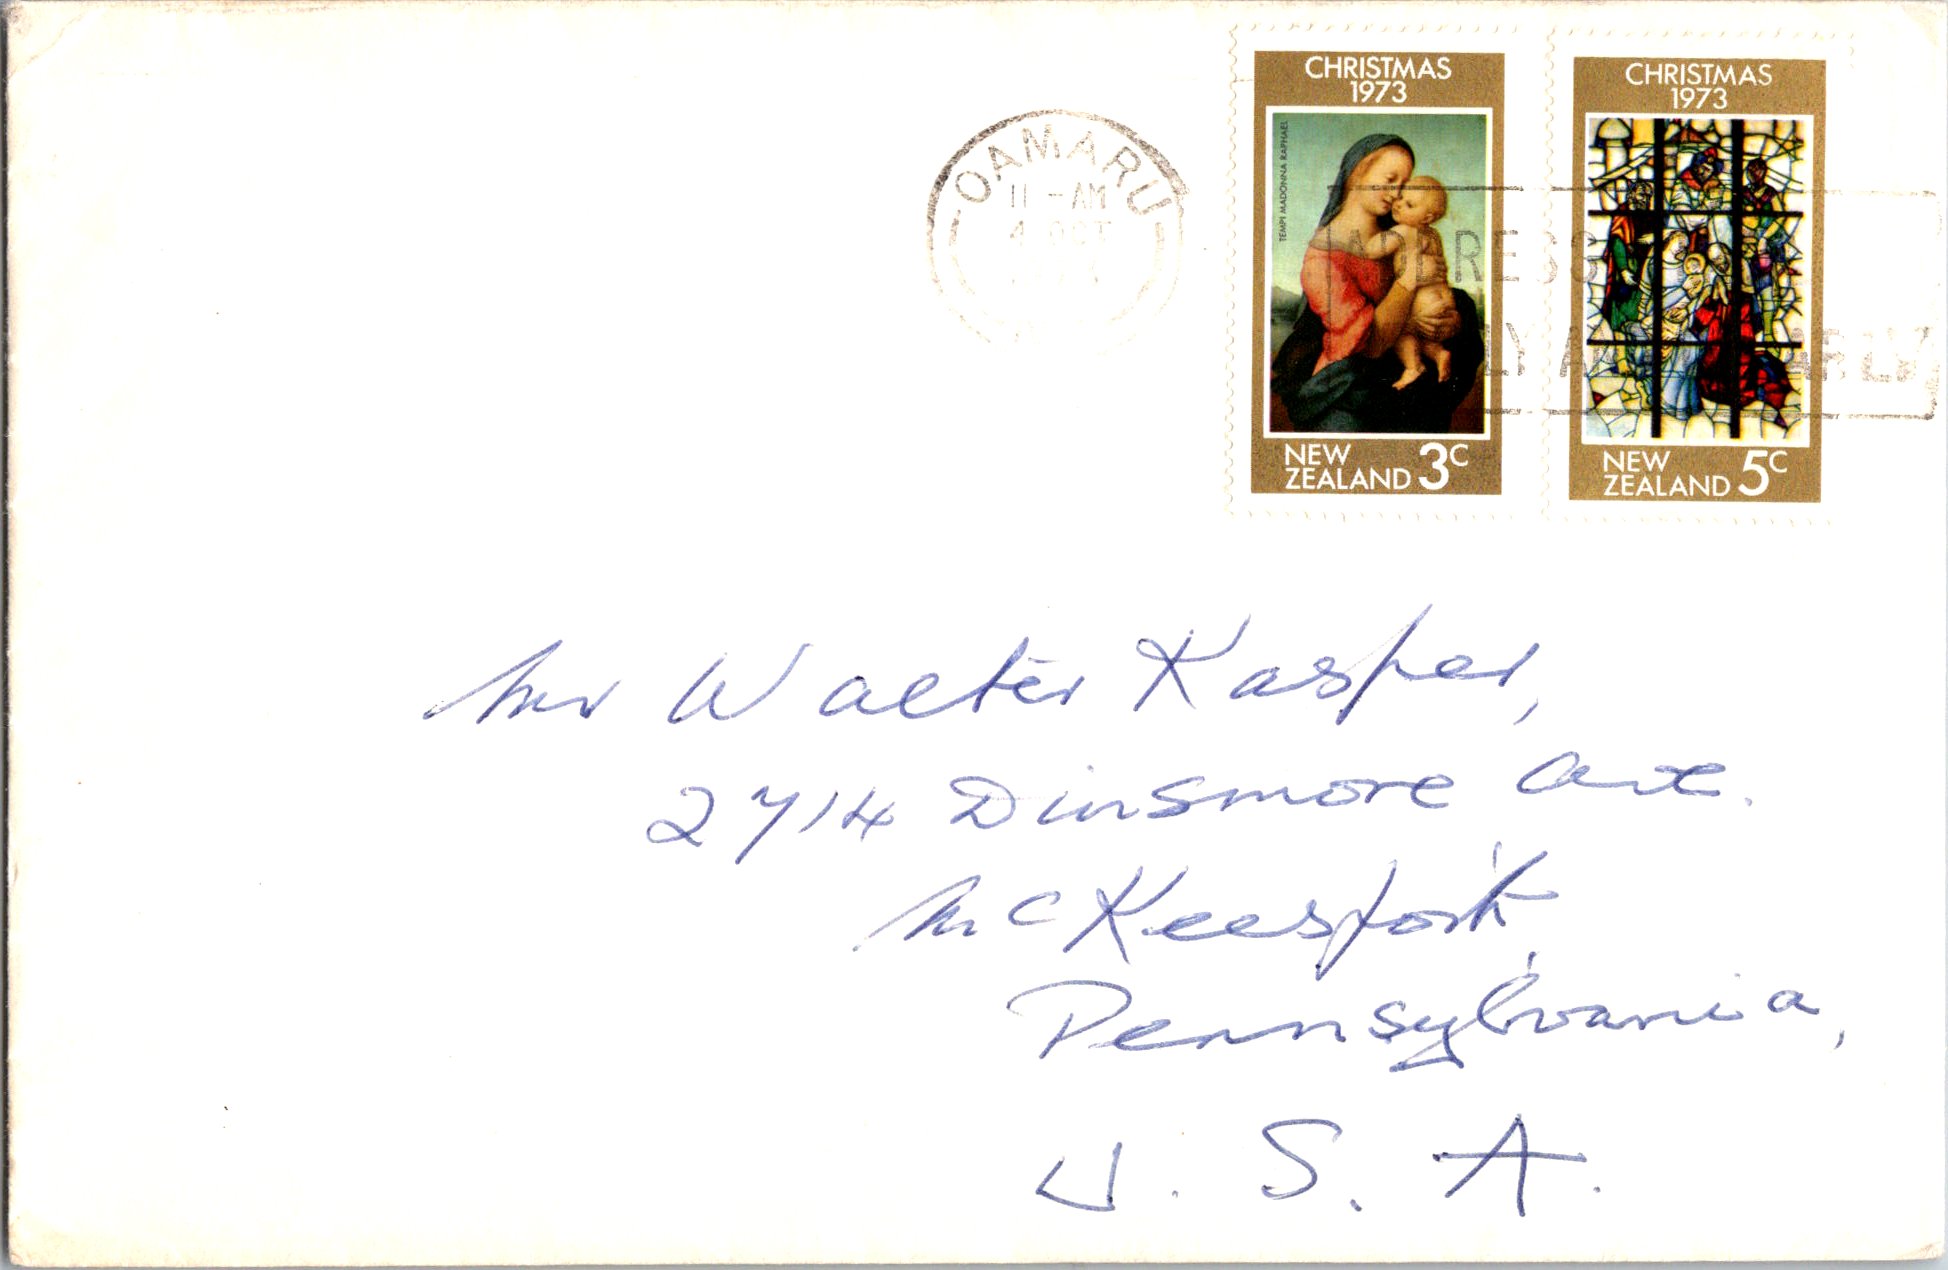 CHRISTMAS
1973
TEMPI MADONNA RAPHAEL
NEW
ZEALAND 3c
CHRISTMAS
1973
NEW
ZEALAND 5c
OAMARU
11 - AM
4 OCT
ADDRESS
Mr Walter Kasper,
2714 Dinsmore Ave.
McKeesport
Pennsylvania,
U. S. A.